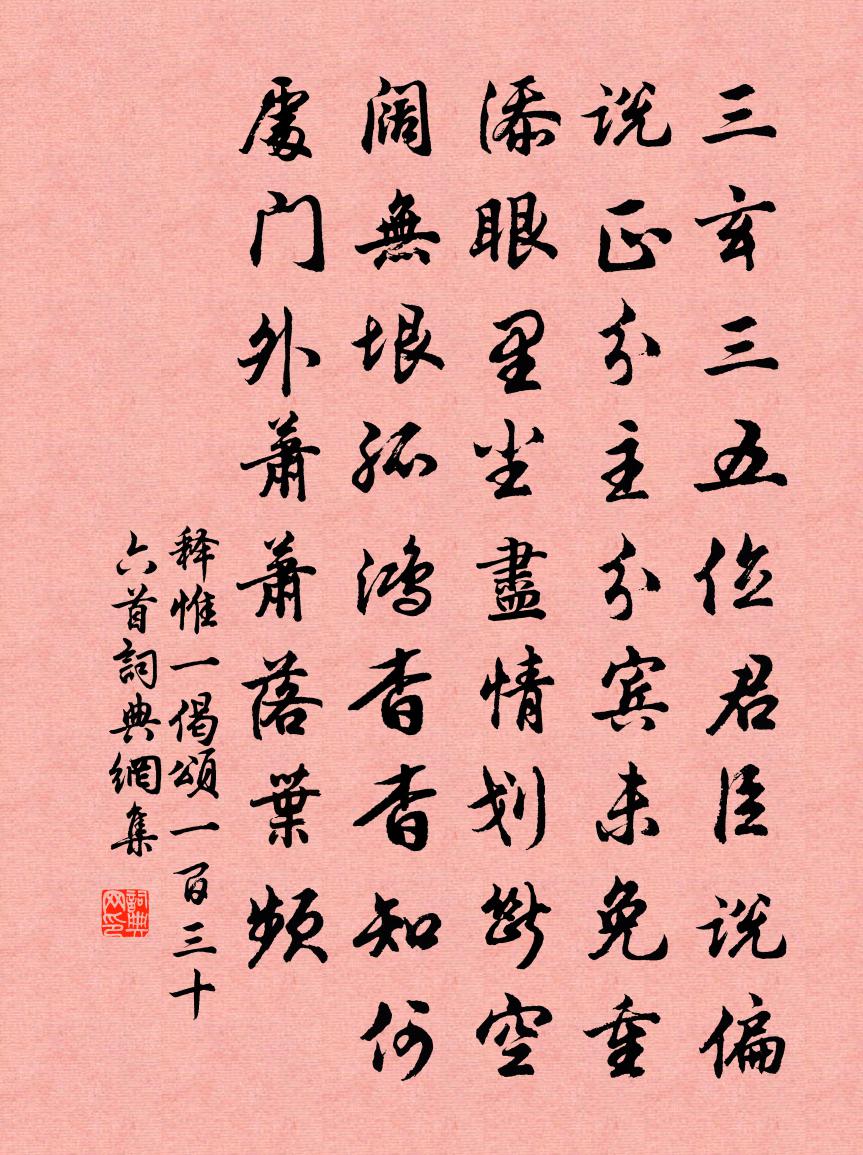 三玄三五位君臣说偏
说正分主分宾未免重
添眼里尘尽情划断空
阔無垠孤鸿杳杳知何
處门外萧萧落葉频
释惟一偈颂一百三十
六首詞典網集
詞典网印